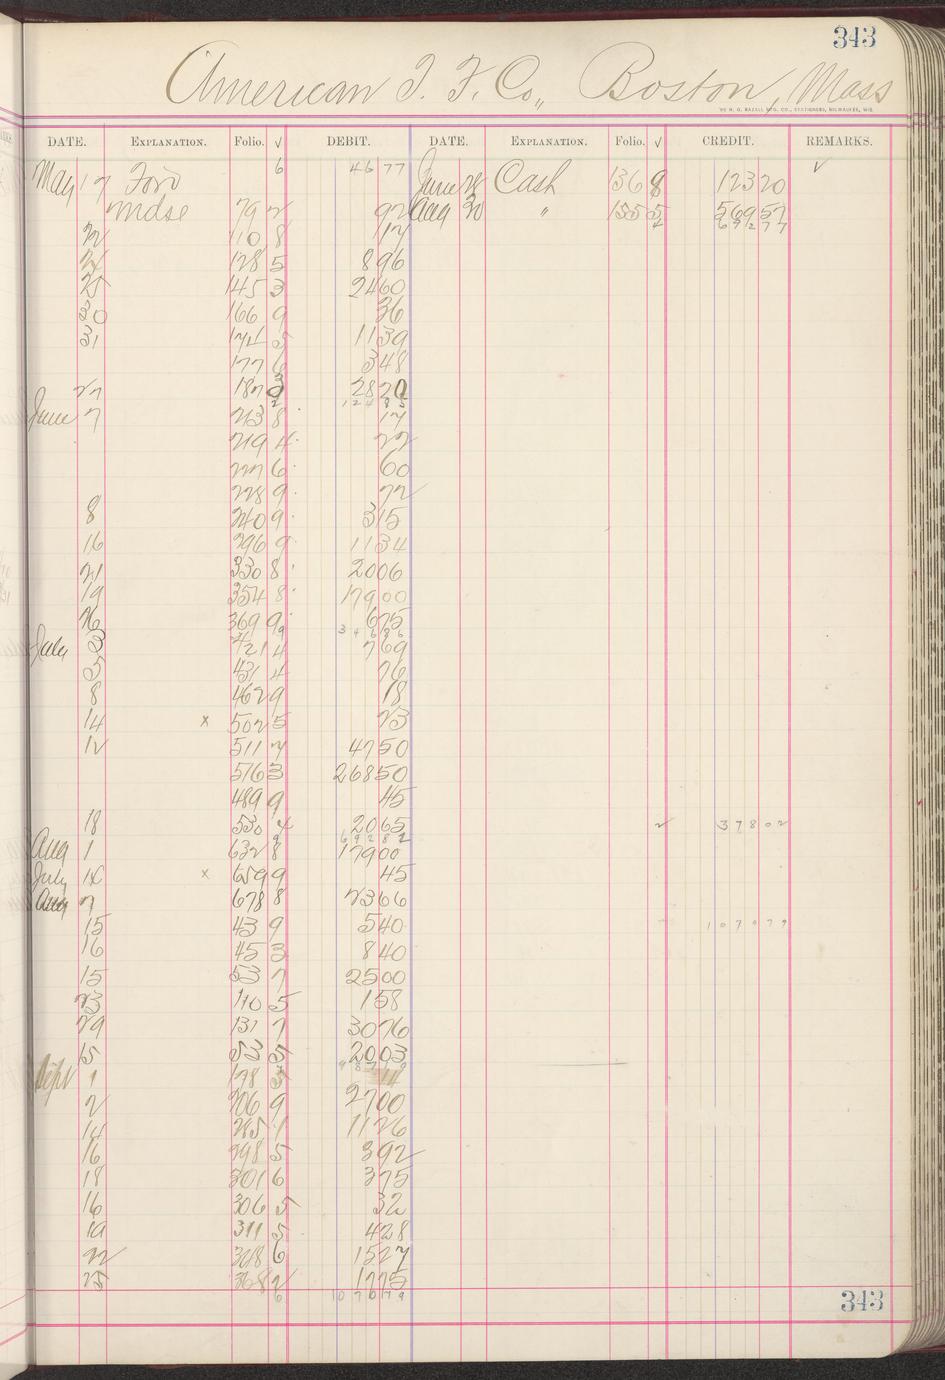 343
American T. F. Co., Boston, Mass
THE H. G. RAZALL MFG. CO., STATIONERS, MILWAUKEE, WIS.
DATE. EXPLANATION. Folio. √ DEBIT. DATE. EXPLANATION. Folio. √ CREDIT. REMARKS.
May 17 Ford 6 46 77 June Cash 136 8 123 20 √
Mdse 79 2 92 Aug 30 " 155 5 569 57
692 77
22 110 8 17
24 128 5 8 96
25 145 3 24 60
30 166 9 36
31 174 5 11 39
177 6 3 48
27 187 3 28 70
124 85
June 7 213 8 17
219 4 22
227 6 60
228 9 72
8 240 9 3 15
16 296 9 11 34
21 330 8 20 06
19 354 8 179 00
26 369 9 6 75
346 86
July 3 421 4 7 69
5 431 4 76
8 462 9 18
14 x 502 5 23
12 511 7 47 50
516 3 268 50
489 9 45
18 530 4 20 65 2 378 02
692 82
Aug 1 632 8 179 00
July 16 x 659 9 45
Aug 7 678 8 23 66
15 43 9 5 40 1070 79
16 45 3 8 40
15 53 7 25 00
23 110 5 1 58
29 131 7 30 76
15 53 5 20 03
Sept 1 178 5
2 206 9 27 00
14 285 1 11 26
16 298 5 3 92
18 301 6 3 75
16 306 5 32
19 311 5 4 28
22 328 6 15 27
25 368 2 17 75
6 1070 79
343